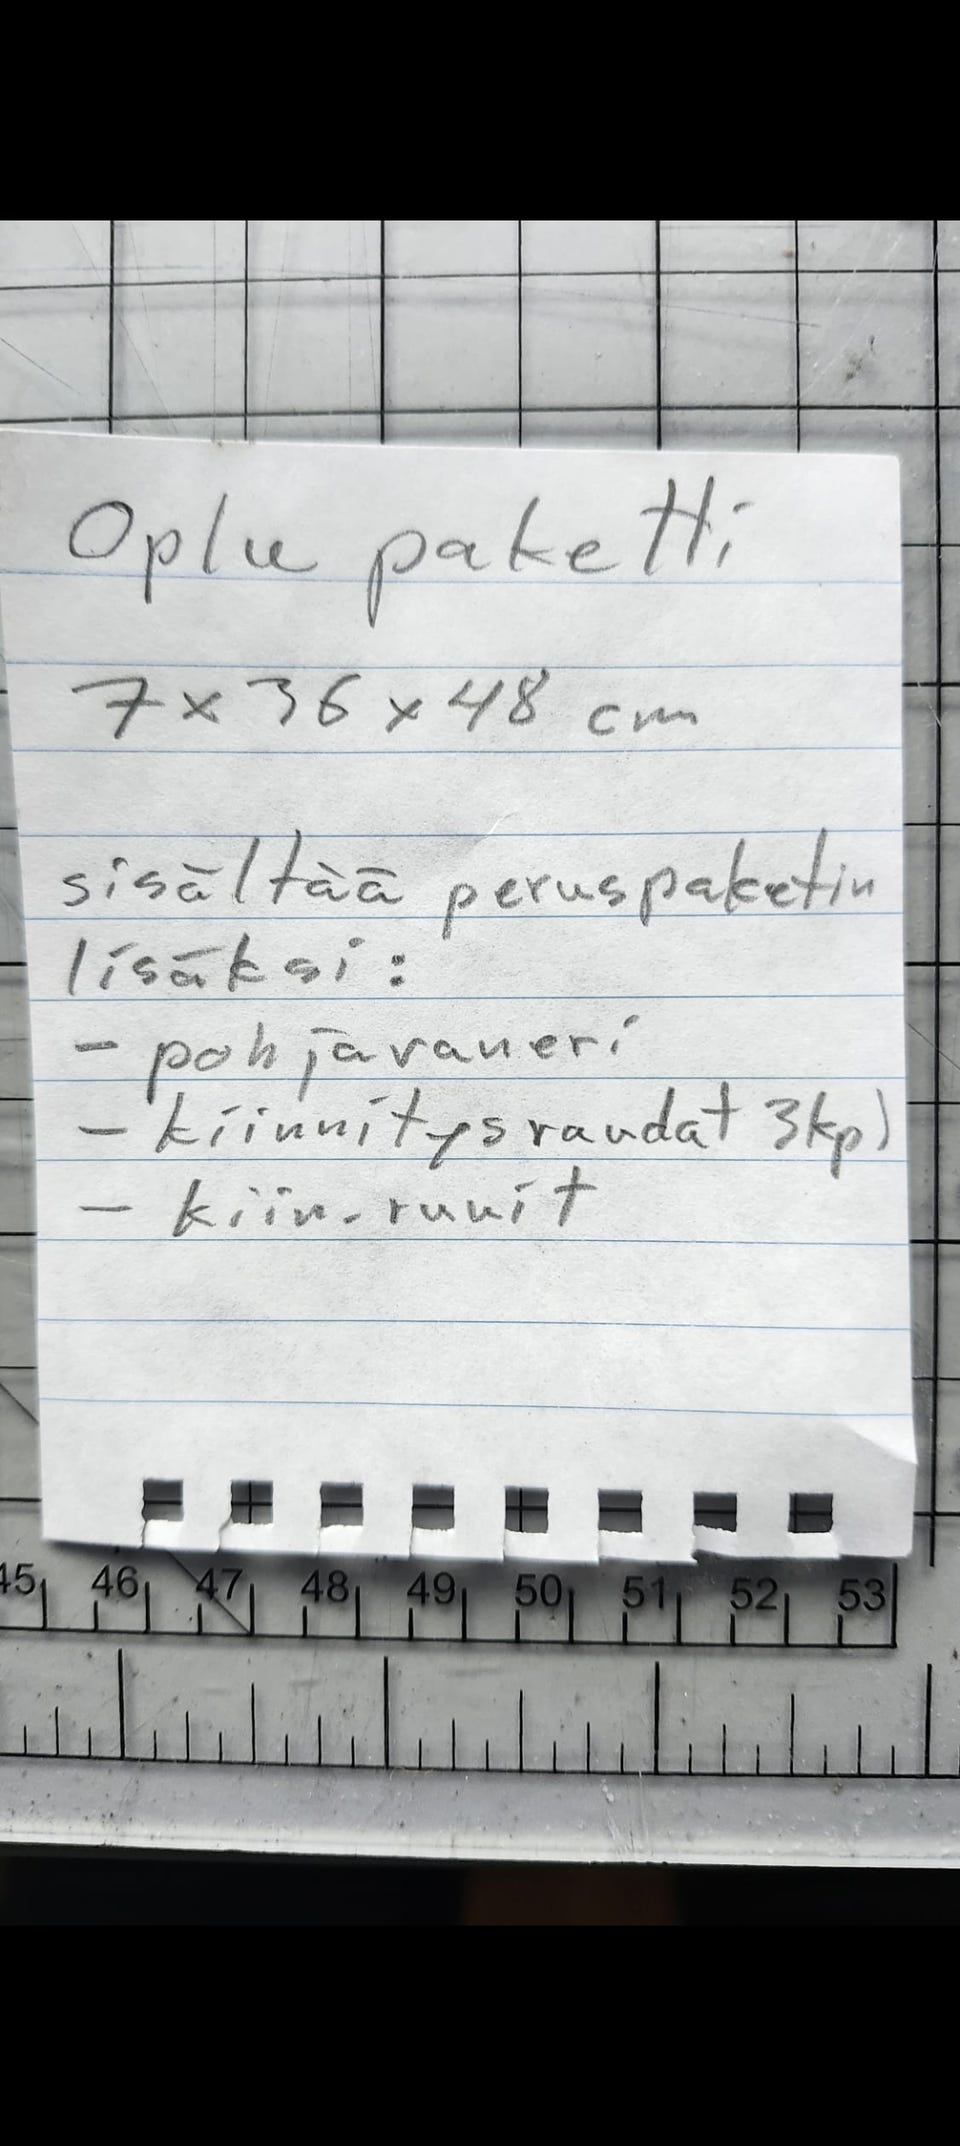 Oplu paketti
7 x 36 x 48 cm
sisältää peruspaketin
lisäksi:
- pohjavaneri
- kiinnitysraudat 3kp)
- kiin. ruuvit
45 46 47 48 49 50 51 52 53